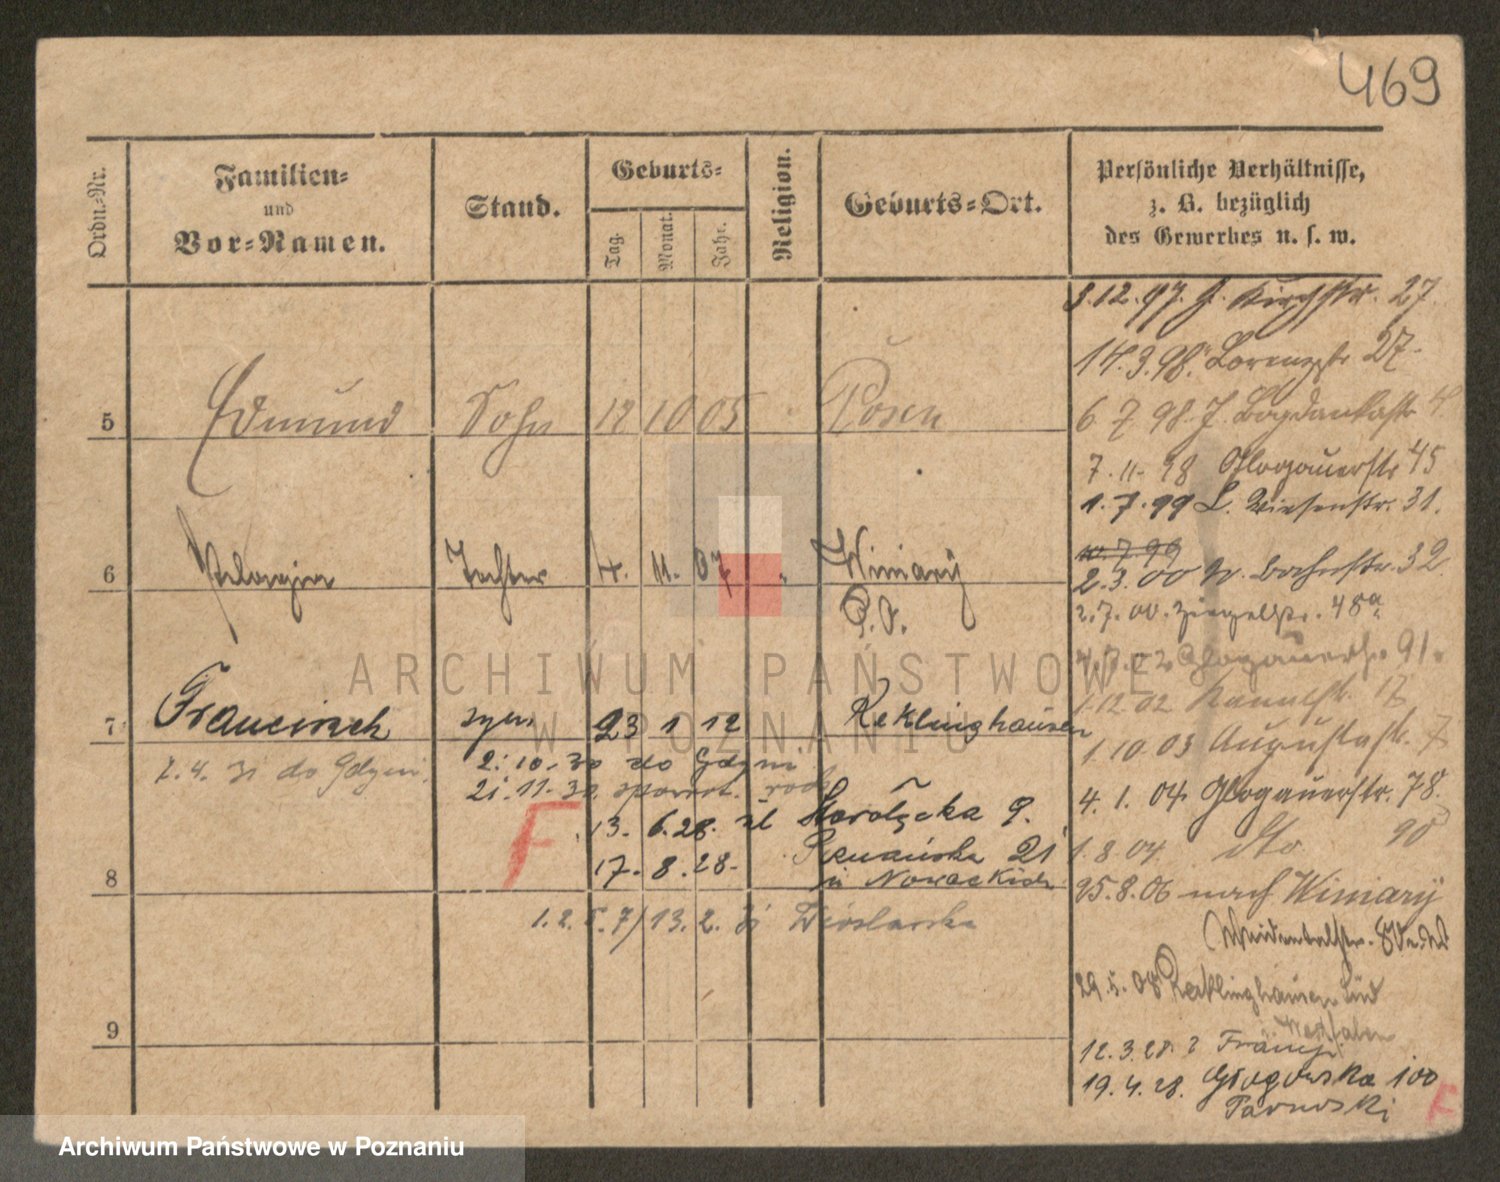 469
Ordn.-Nr.
Familien-
und
Vor-Namen.
Stand.
Geburts-
Tag.
Monat.
Jahr.
Religion.
Geburts-Ort.
Persönliche Verhältnisse,
z. B. bezüglich
des Gewerbes u. s. w.
3.12.97. J. Kirchstr. 27
14.3.98. Lorenzstr 27.
5 Edmund Sohn 12 10 05 Posen
6 7 98. J. Bogdankastr 4.
7.11.98 Glogauerstr 45
1.7.99 L. Wiesenstr. 31.
10.7.99
6 Pelagia Tochter 4. 11. 07 Winiary
P. O.
2.3.00 W. Bachstr. 32
2.7.00. Ziegelstr. 48a
4.7.02 Glogauerstr. 91.
1.12 02 Kanalstr. 17
7 Franciszek syn 23 1 12 Recklinghausen
1.10.03 Augustastr. 7
7.4.31 do Gdyni.
2.10.30 do Gdyni
21.11.30 spowrot.
4.1.04 Glogauerstr. 78
F
13. 6.28. ul
9.
1.8.04 dto 90
17. 8.28. 21
u Nowackich
8
25.8.06 nach Winiary
1.2.5.7/13.2.31 Wroslawska
Weidentalstr.
29.5.08 Recklinghausen Süd
Westfalen
9
12.3.28. z Francji
19.4.28. Głogowska 100
Tarnowski
F
ARCHIWUM PAŃSTWOWE
W POZNANIU
Archiwum Państwowe w Poznaniu